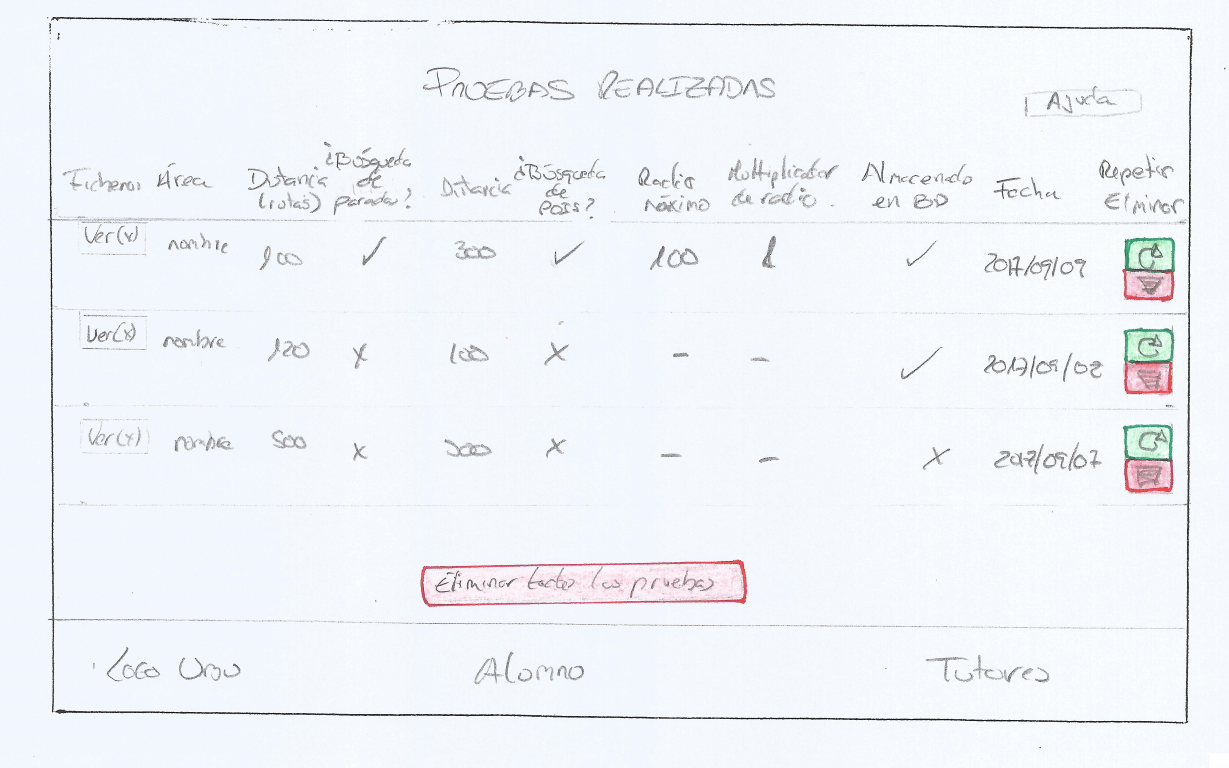 PRUEBAS REALIZADAS
Ajuda
Ficheros Área Distancia (rutas) ¿Búsqueda de parada? Distancia ¿Búsqueda de POIs? Radio máximo Multiplicador de radio. Almacenado en BD Fecha Repetir Eliminar
Ver(x) nombre 100 ✓ 300 ✓ 100 1 ✓ 2017/09/09
Ver(x) nombre 120 x 100 x - - ✓ 2017/09/08
Ver(x) nombre 500 x 300 x - - x 2017/09/07
Eliminar todas las pruebas
Logo Alumno Tutores